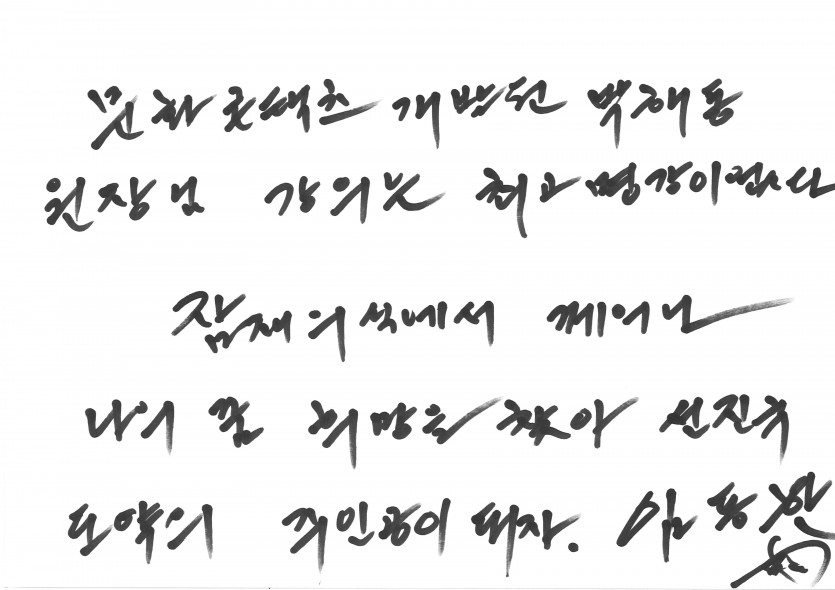 문화콘텐츠 개발원 박재동
원장님 강의는 최고 명강이였다
잠재의식에서 깨어나
나의 꿈 희망을 찾아 선진국
도약의 주인공이 되자. 임동